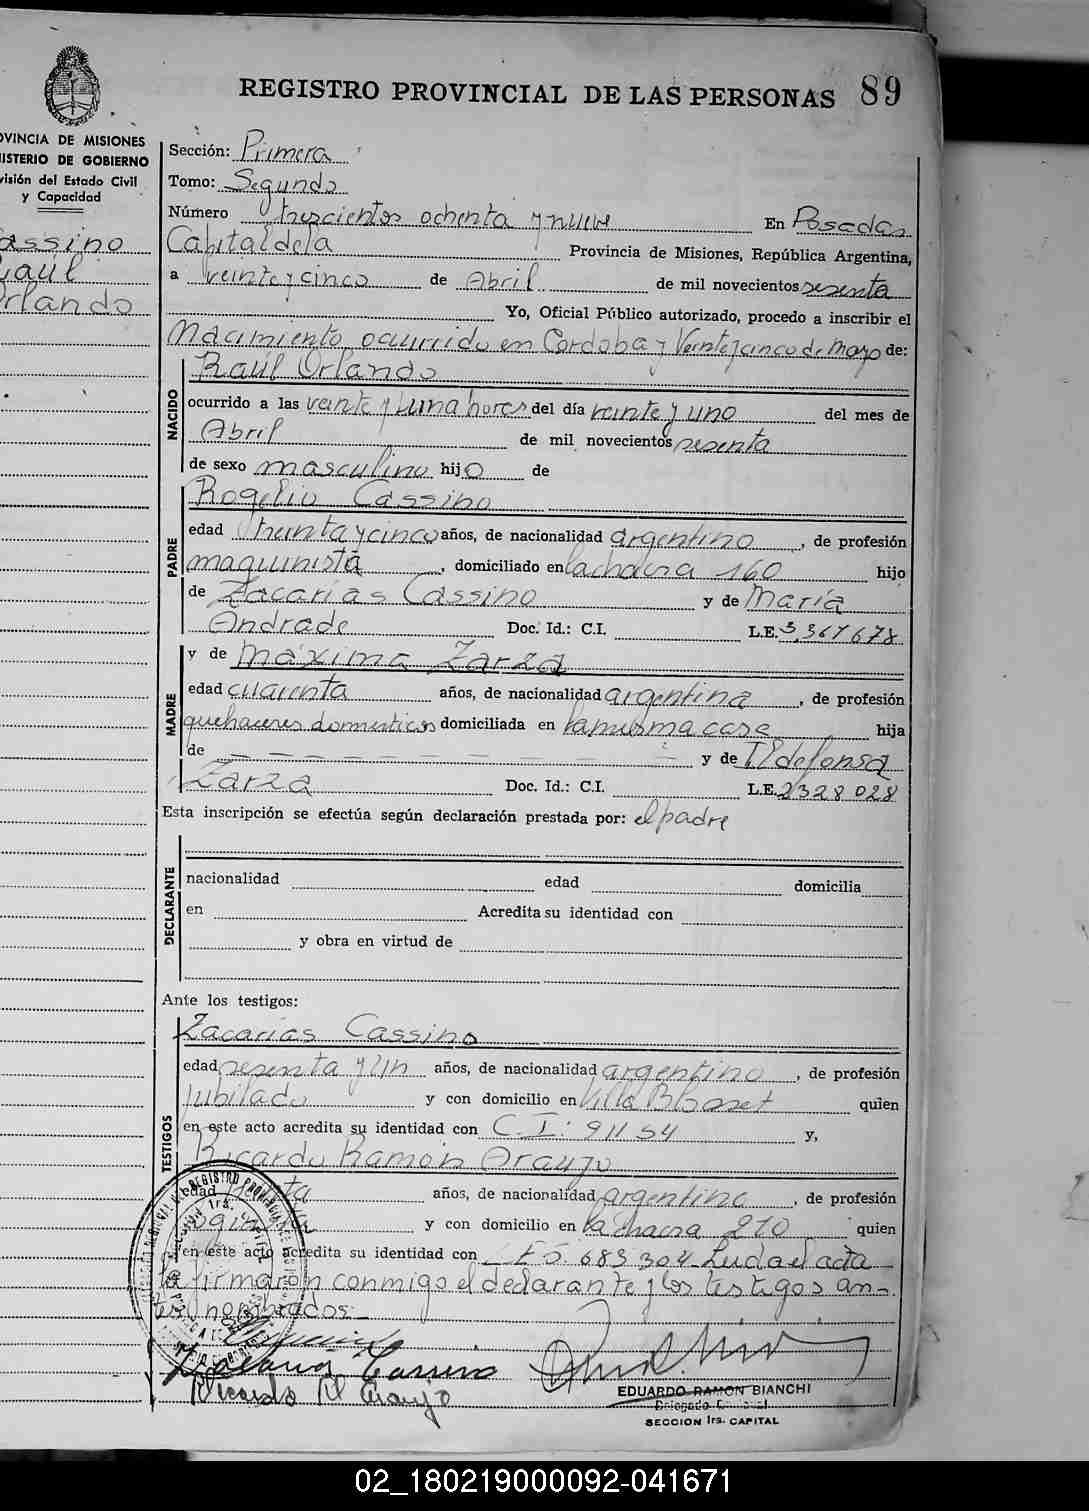 REGISTRO PROVINCIAL DE LAS PERSONAS 89
OVINCIA DE MISIONES
ISTERIO DE GOBIERNO
visión del Estado Civil
y Capacidad
assino
Raúl
Orlando
Sección: Primera
Tomo: Segundo
Número trescientos ochenta y nueve En Posadas
Capital de la Provincia de Misiones, República Argentina,
a veinte y cinco de Abril de mil novecientos sesenta
Yo, Oficial Público autorizado, procedo a inscribir el
Nacimiento ocurrido en Cordoba y Veinte y cinco de Mayo de:
NACIDO
Raúl Orlando
ocurrido a las veinte y una horas del día veinte y uno del mes de
Abril de mil novecientos sesenta
de sexo masculino hijo de
PADRE
Rogelio Cassino
edad treinta y cinco años, de nacionalidad argentino, de profesión
maquinista, domiciliado en la chacra 160 hijo
de Zacarías Cassino y de María
Andrade Doc. Id.: C.I. L.E. 3.367678
MADRE
y de Máxima Zarza
edad cuarenta años, de nacionalidad argentina, de profesión
quehaceres domesticos domiciliada en la misma casa hija
de — — — — — — — y de Ildefonsa
Zarza Doc. Id.: C.I. L.E. 2328028
Esta inscripción se efectúa según declaración prestada por: el padre
DECLARANTE
nacionalidad edad domicilia
en Acredita su identidad con
y obra en virtud de
Ante los testigos:
TESTIGOS
Zacarías Cassino
edad sesenta y un años, de nacionalidad argentino, de profesión
jubilado y con domicilio en Villa Blosset quien
en este acto acredita su identidad con C.I: 91154 y,
Ricardo Ramón Araujo
edad años, de nacionalidad argentino, de profesión
y con domicilio en la chacra 210 quien
en este acto acredita su identidad con LE 5.683304 Leida el acta
la firmaron conmigo el declarante y los testigos an-
tes nombrados:
Zacaria Cassino
Ricardo R Araujo
EDUARDO RAMON BIANCHI
SECCION 1ra. CAPITAL
02_180219000092-041671